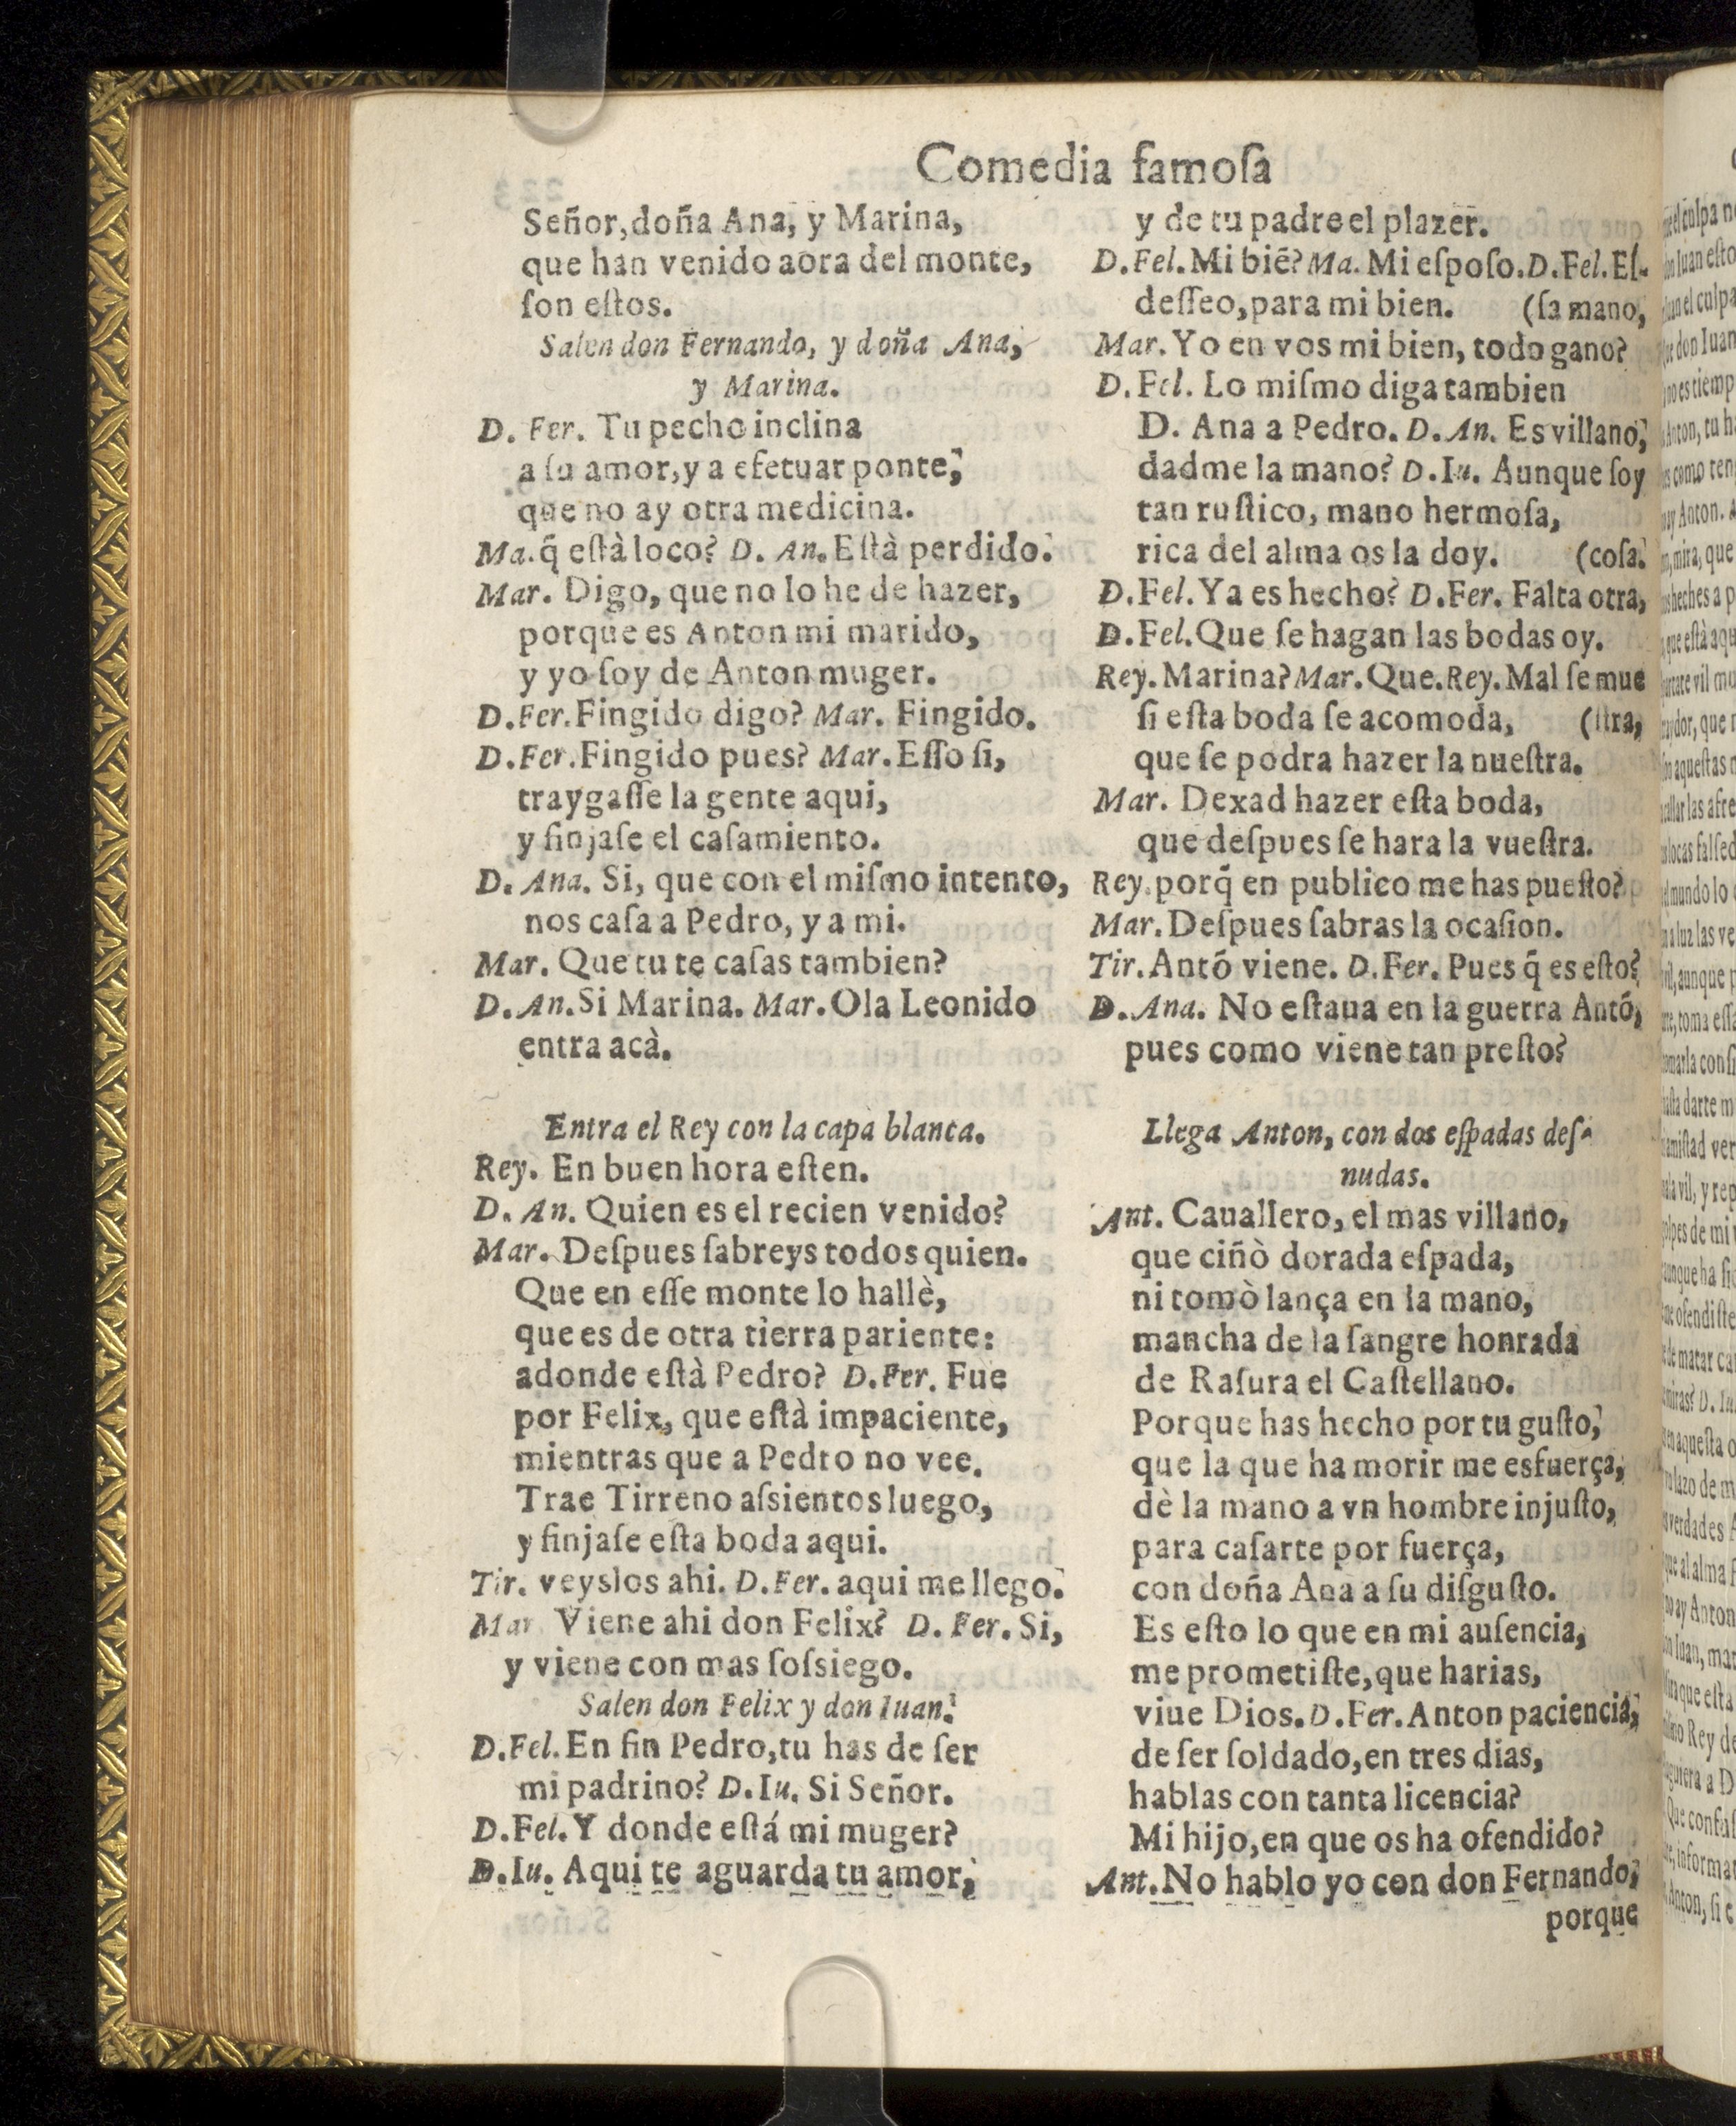 Comedia famoſa
Señor,doña Ana, y Marina,
que han venido aora del monte,
ſon eſtos.
Salen don Fernando, y doña Ana,
y Marina.
D. Fer. Tu pecho inclina
a ſu amor,y a efetuar ponte,
que no ay otra medicina.
Ma.q̃ eſtà loco? D. An. Eſtà perdido.
Mar. Digo, que no lo he de hazer,
porque es Anton mi marido,
y yo ſoy de Anton muger.
D.Fer.Fingido digo? Mar. Fingido.
D.Fer.Fingido pues? Mar. Eſſo ſi,
traygaſſe la gente aqui,
y finjaſe el caſamiento.
D. Ana. Si, que con el miſmo intento,
nos caſa a Pedro, y a mi.
Mar. Que tu te caſas tambien?
D. An. Si Marina. Mar. Ola Leonido
entra acà.
Entra el Rey con la capa blanca.
Rey. En buen hora eſten.
D. An. Quien es el recien venido?
Mar. Deſpues ſabreys todos quien.
Que en eſſe monte lo hallè,
que es de otra tierra pariente:
adonde eſtà Pedro? D.Fer. Fue
por Felix, que eſtà impaciente,
mientras que a Pedro no vee.
Trae Tirreno aſsientos luego,
y finjaſe eſta boda aqui.
Tir. veyslos ahi. D.Fer. aqui me llego.
Mar Viene ahi don Felix? D. Fer. Si,
y viene con mas ſoſsiego.
Salen don Felix y don Iuan.
D.Fel. En fin Pedro,tu has de ſer
mi padrino? D.Iu. Si Señor.
D.Fel. Y donde eſtá mi muger?
D.Iu. Aqui te aguarda tu amor,
y de tu padre el plazer.
D.Fel. Mi biẽ? Ma. Mi eſpoſo.D.Fel. Eſ-
deſſeo,para mi bien. (ſa mano,
Mar. Yo en vos mi bien, todo gano?
D.Fel. Lo miſmo diga tambien
D. Ana a Pedro. D.An. Es villano,
dadme la mano? D.Iu. Aunque ſoy
tan ruſtico, mano hermoſa,
rica del alma os la doy. (coſa.
D.Fel. Ya es hecho? D.Fer. Falta otra,
D.Fel.Que ſe hagan las bodas oy.
Rey. Marina? Mar. Que.Rey. Mal ſe mue
ſi eſta boda ſe acomoda, (ſtra,
que ſe podra hazer la nueſtra.
Mar. Dexad hazer eſta boda,
que deſpues ſe hara la vueſtra.
Rey.porq̃ en publico me has pueſto?
Mar. Deſpues ſabras la ocaſion.
Tir. Antõ viene. D.Fer. Pues q̃ es eſto?
D.Ana. No eſtaua en la guerra Antõ,
pues como viene tan preſto?
Llega Anton, con dos eſpadas deſ-
nudas.
Ant. Cauallero, el mas villano,
que ciñò dorada eſpada,
ni tomò lança en la mano,
mancha de la ſangre honrada
de Raſura el Caſtellano.
Porque has hecho por tu guſto,
que la que ha morir me esfuerça,
dè la mano a vn hombre injuſto,
para caſarte por fuerça,
con doña Ana a ſu diſguſto.
Es eſto lo que en mi auſencia,
me prometiſte,que harias,
viue Dios.D.Fer.Anton paciencia,
de ſer ſoldado,en tres dias,
hablas con tanta licencia?
Mi hijo,en que os ha ofendido?
Ant.No hablo yo con don Fernando,
porque